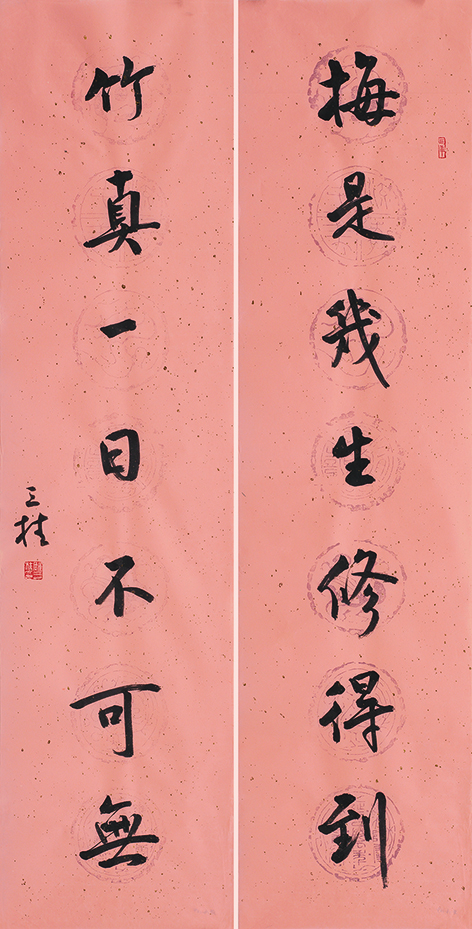 梅是幾生修得到
竹真一日不可無
三桂